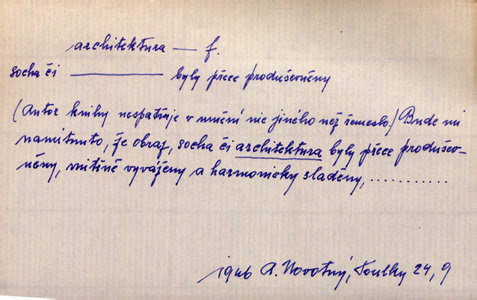 architektura — f.
socha či ——— byly přece produševněny
(Autor knihy nespatřuje v umění nic jiného než řemeslo) Bude mi
namítnuto, že obraz, socha či architektura byly přece produševo-
něny, vnitřně vyváženy a harmonicky sladěny, ...........
1946 A. Novotný, Toulky 24, 9